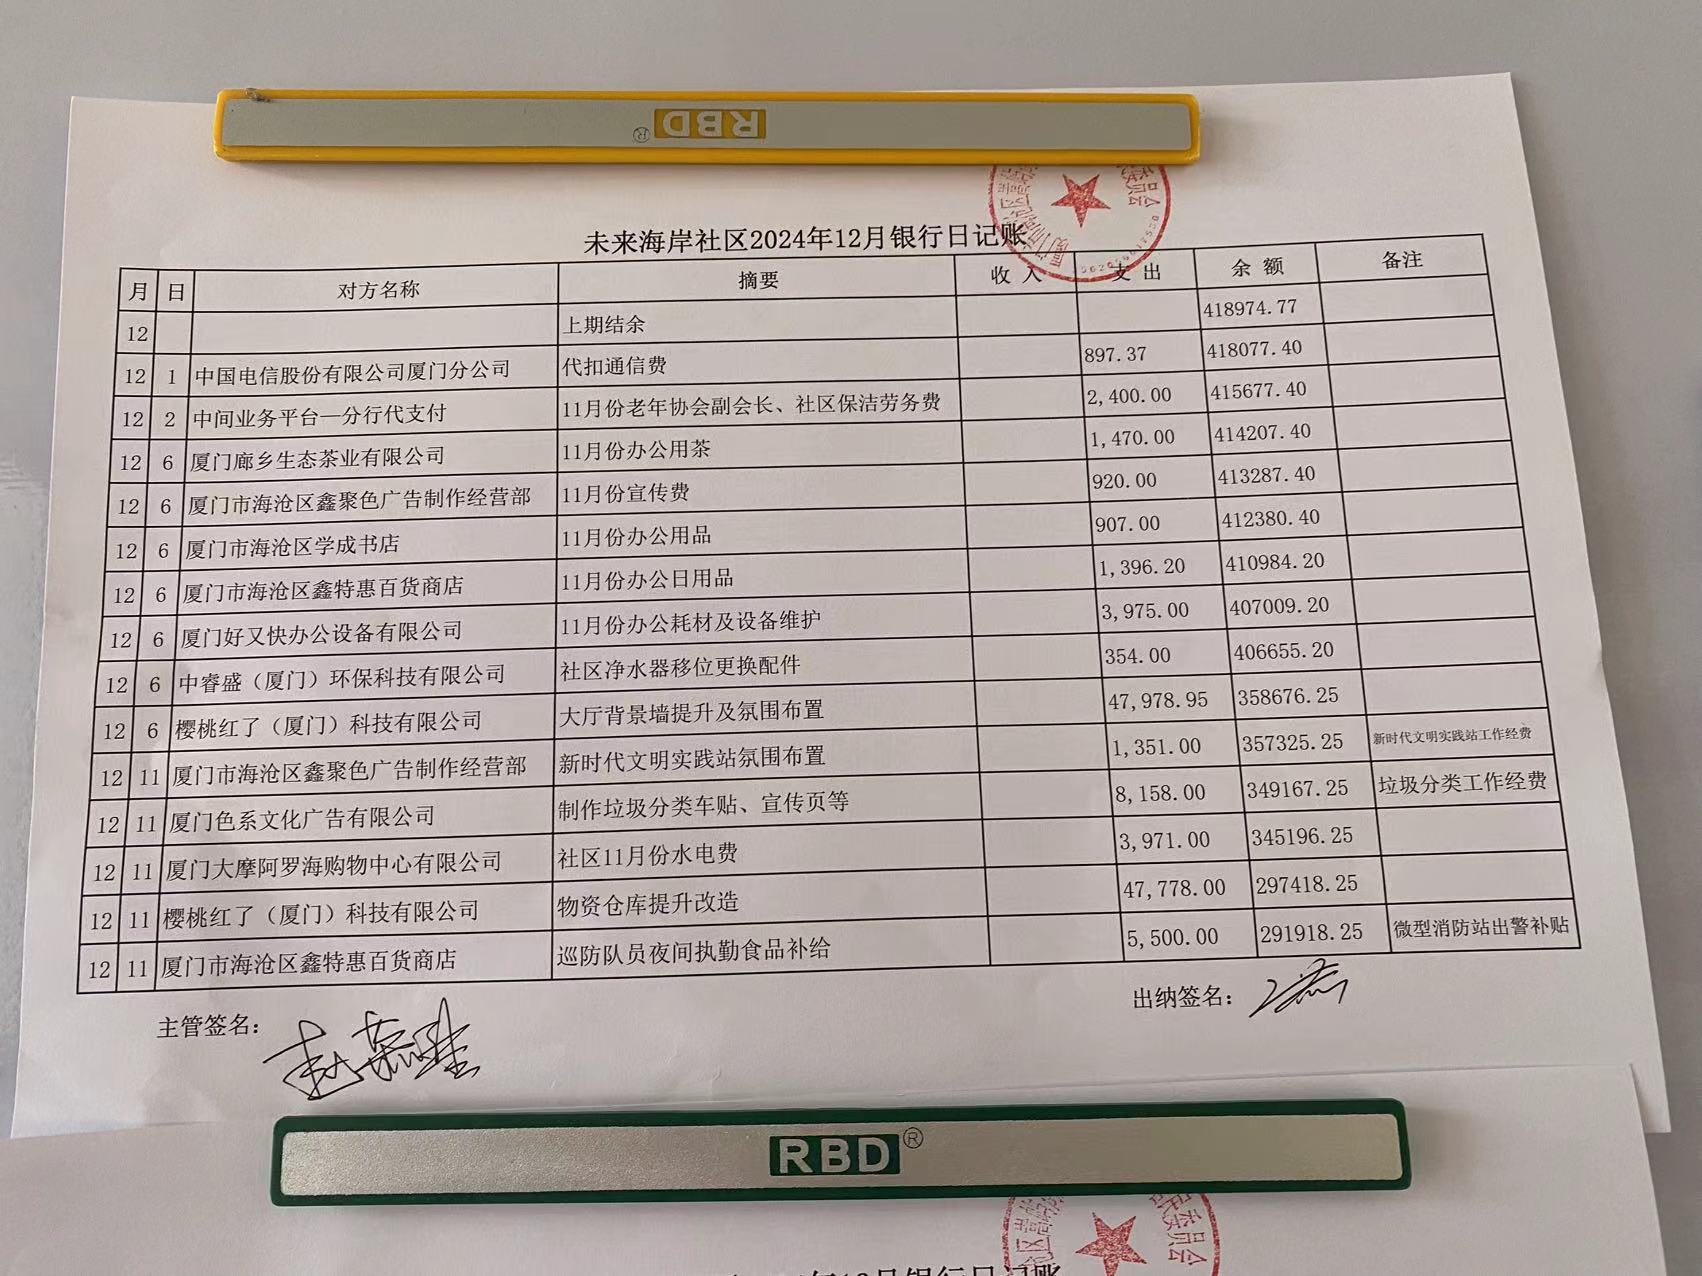 RBD®
未来海岸社区2024年12月银行日记账
月 日 对方名称 摘要 收 入 支 出 余 额 备注
12 上期结余 418974.77
12 1 中国电信股份有限公司厦门分公司 代扣通信费 897.37 418077.40
12 2 中间业务平台—分行代支付 11月份老年协会副会长、社区保洁劳务费 2,400.00 415677.40
12 6 厦门廊乡生态茶业有限公司 11月份办公用茶 1,470.00 414207.40
12 6 厦门市海沧区鑫聚色广告制作经营部 11月份宣传费 920.00 413287.40
12 6 厦门市海沧区学成书店 11月份办公用品 907.00 412380.40
12 6 厦门市海沧区鑫特惠百货商店 11月份办公日用品 1,396.20 410984.20
12 6 厦门好又快办公设备有限公司 11月份办公耗材及设备维护 3,975.00 407009.20
12 6 中睿盛（厦门）环保科技有限公司 社区净水器移位更换配件 354.00 406655.20
12 6 樱桃红了（厦门）科技有限公司 大厅背景墙提升及氛围布置 47,978.95 358676.25
12 11 厦门市海沧区鑫聚色广告制作经营部 新时代文明实践站氛围布置 1,351.00 357325.25 新时代文明实践站工作经费
12 11 厦门色系文化广告有限公司 制作垃圾分类车贴、宣传页等 8,158.00 349167.25 垃圾分类工作经费
12 11 厦门大摩阿罗海购物中心有限公司 社区11月份水电费 3,971.00 345196.25
12 11 樱桃红了（厦门）科技有限公司 物资仓库提升改造 47,778.00 297418.25
12 11 厦门市海沧区鑫特惠百货商店 巡防队员夜间执勤食品补给 5,500.00 291918.25 微型消防站出警补贴
主管签名： 出纳签名：
RBD®